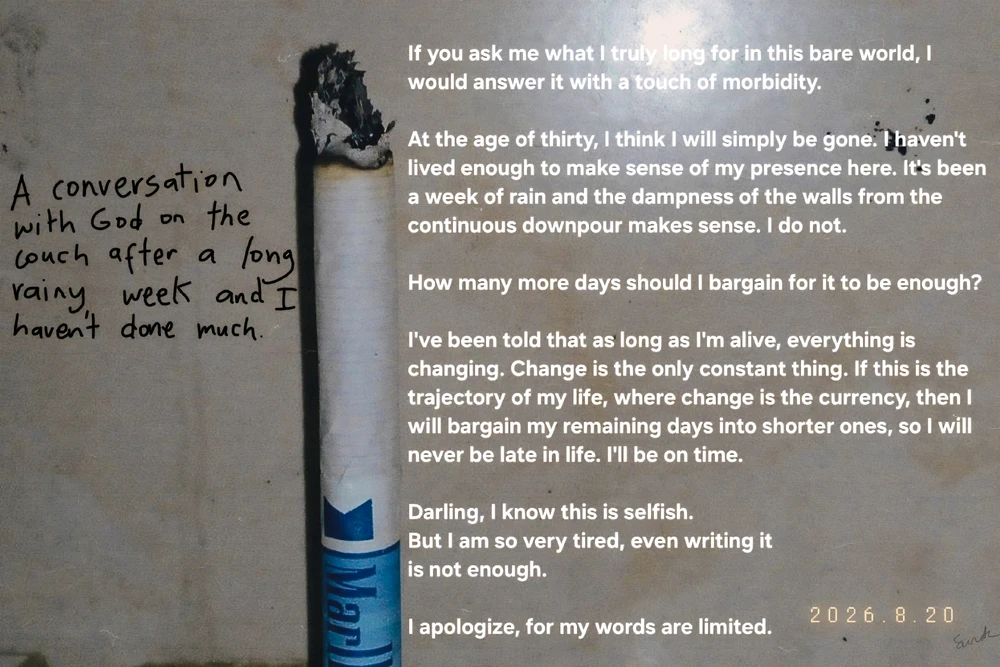 A conversation
with God on the
couch after a long
rainy week and I
haven't done much.
If you ask me what I truly long for in this bare world, I
would answer it with a touch of morbidity.
At the age of thirty, I think I will simply be gone. I haven't
lived enough to make sense of my presence here. It's been
a week of rain and the dampness of the walls from the
continuous downpour makes sense. I do not.
How many more days should I bargain for it to be enough?
I've been told that as long as I'm alive, everything is
changing. Change is the only constant thing. If this is the
trajectory of my life, where change is the currency, then I
will bargain my remaining days into shorter ones, so I will
never be late in life. I'll be on time.
Darling, I know this is selfish.
But I am so very tired, even writing it
is not enough.
I apologize, for my words are limited.
2026.8.20